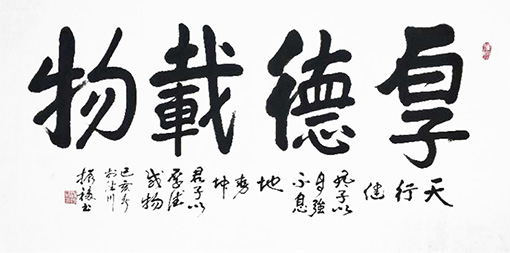 厚德載物
天行健
君子以
自強
不息
地勢坤
君子以
厚德
載物
己亥冬
振
書